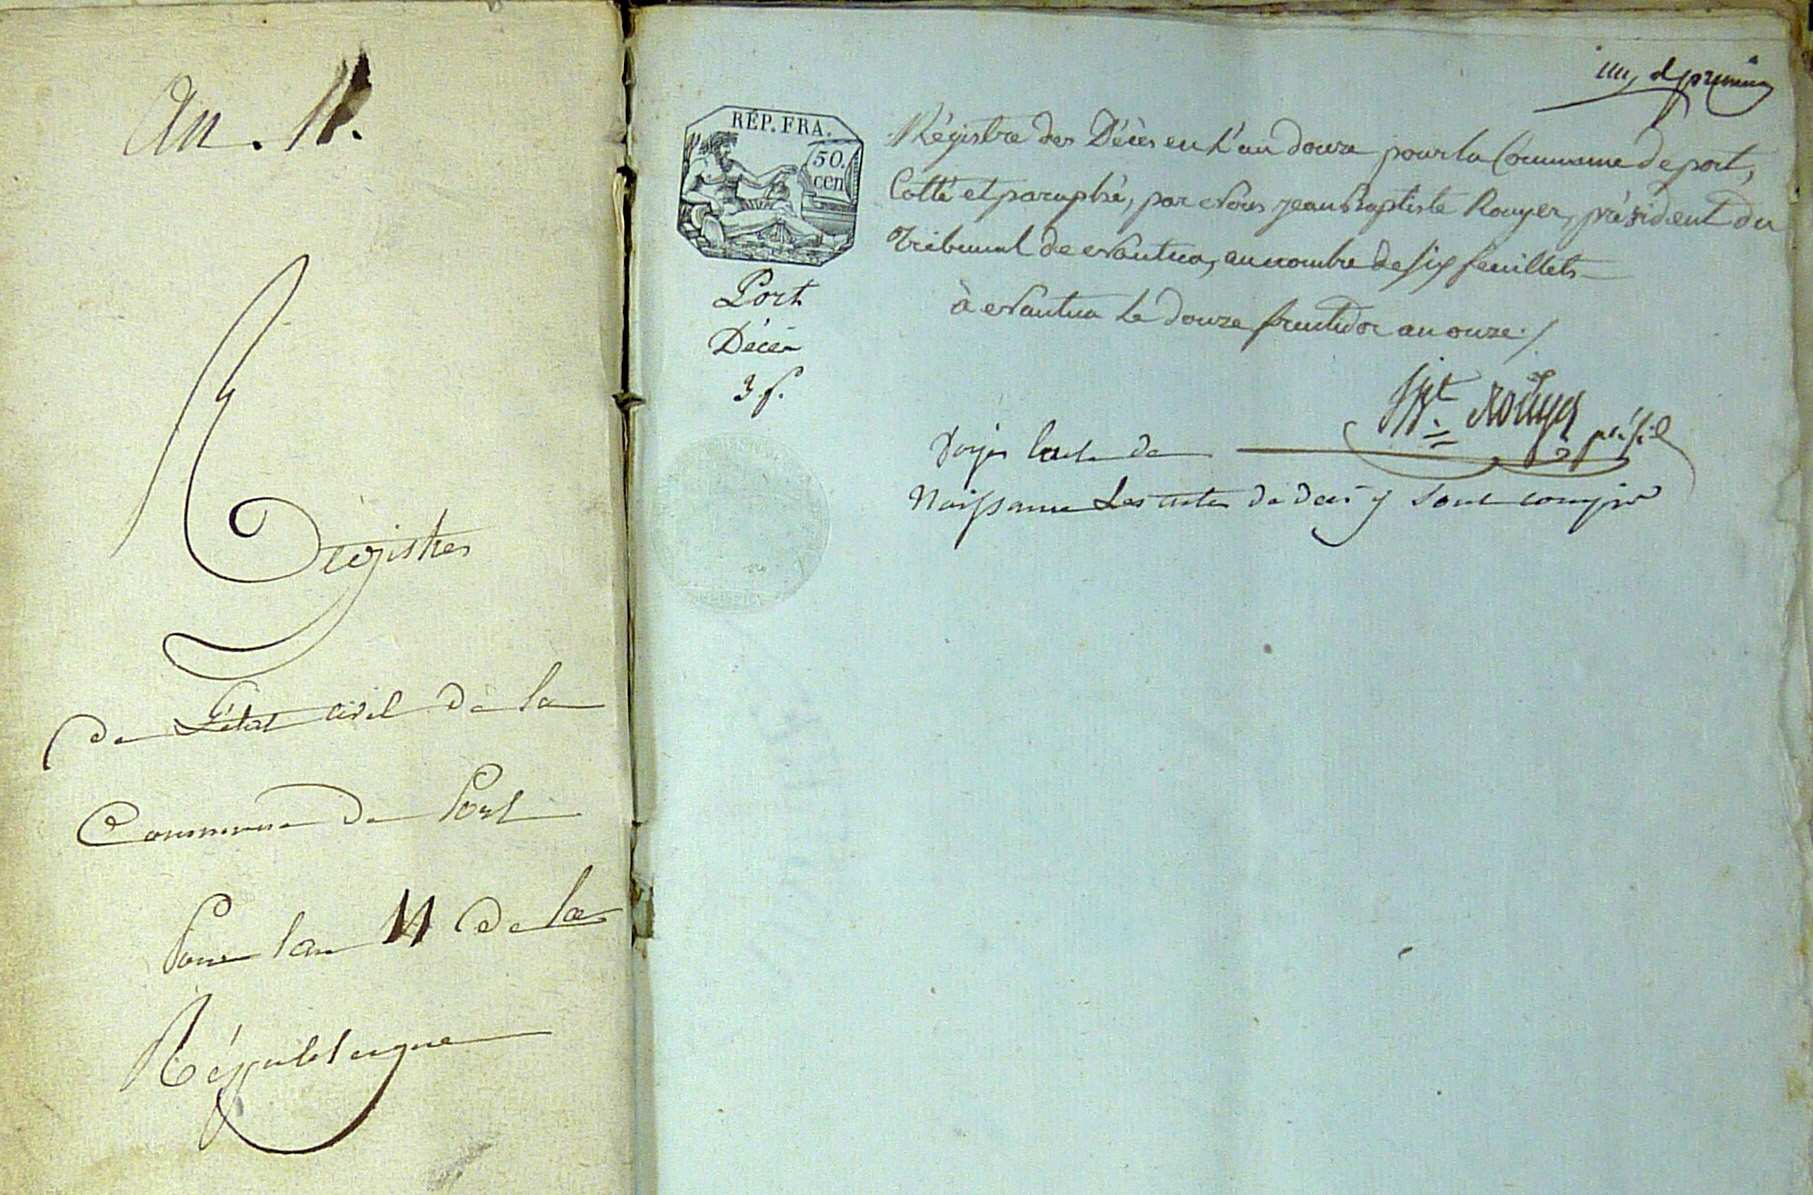 An. 11.
Registre
de L'état civil de la
Commune de Port
Pour lan 11 de la
République
RÉP. FRA.
50.
cen
Port
Décès
3 f.
feuillet premier
Régistre des Décès en L'an douze pour la Commune de port,
Cotté et paraphé, par Nous jean Baptiste Rouyer, président du
Tribunal de Nantua, au nombre de six feuillets
à Nantua le douze fructidor an onze ./
Jn Bt. Rouyer présid
Voyés lacte de
Naissance Les actes de décès y sont compris